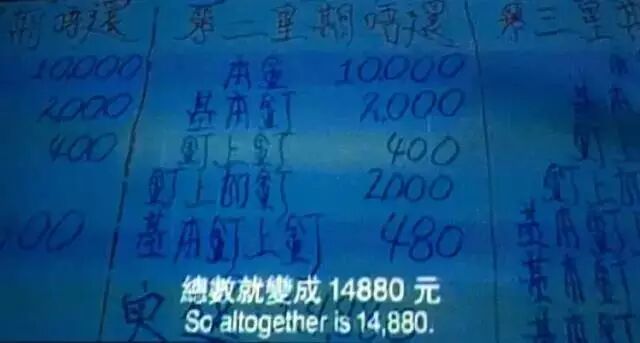 期唔還 第二星期唔還 第三星期
10,000 本金 10,000
2,000 基本釘 2,000
400 釘上釘 400
釘上的釘 2,000 釘上
00 基本釘上釘 480 基本釘
總數就變成 14880 元
So altogether is 14,880.